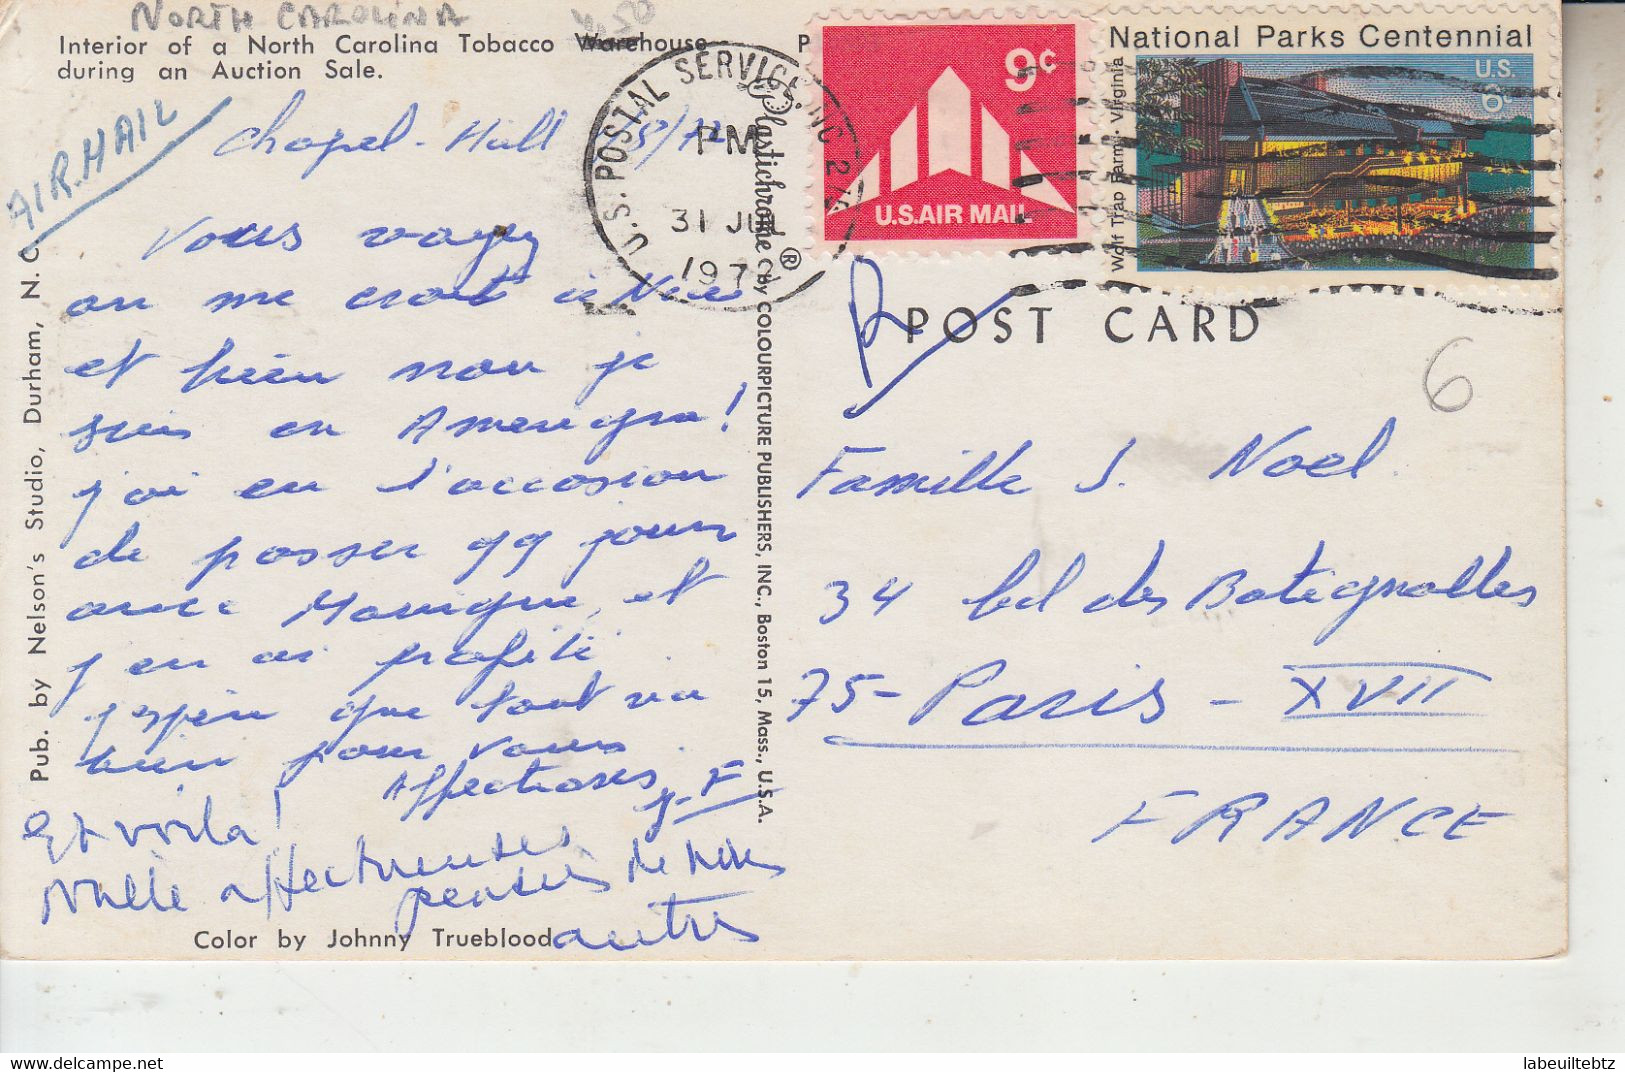 NORTH CAROLINA
Interior of a North Carolina Tobacco Warehouse
during an Auction Sale.
AIR MAIL
Chapel-Hill
Vous voyez
on me croit à Nice
et bien non je
suis en Amerique!
j'ai eu l'occasion
de passer 99 jours
avec Monique, et
j'en ai profité
j'espère que tout va
bien pour vous.
Affections
J-F
Et voilà!
Mille affectueuses
pensées de nous
autres
Color by Johnny Trueblood
Pub. by Nelson's Studio, Durham, N. C.
Plastichrome ® by COLOURPICTURE PUBLISHERS, INC., Boston 15, Mass., U.S.A.
P
U.S. POSTAL SERVICE, NC
PM
31 JUL
197
9¢
U.S. AIR MAIL
National Parks Centennial
U.S.
6¢
Wolf Trap Farm · Virginia
POST CARD
6
Famille J. Noel.
34 bd des Batignolles
75- Paris - XVII
FRANCE
labeuiltebtz